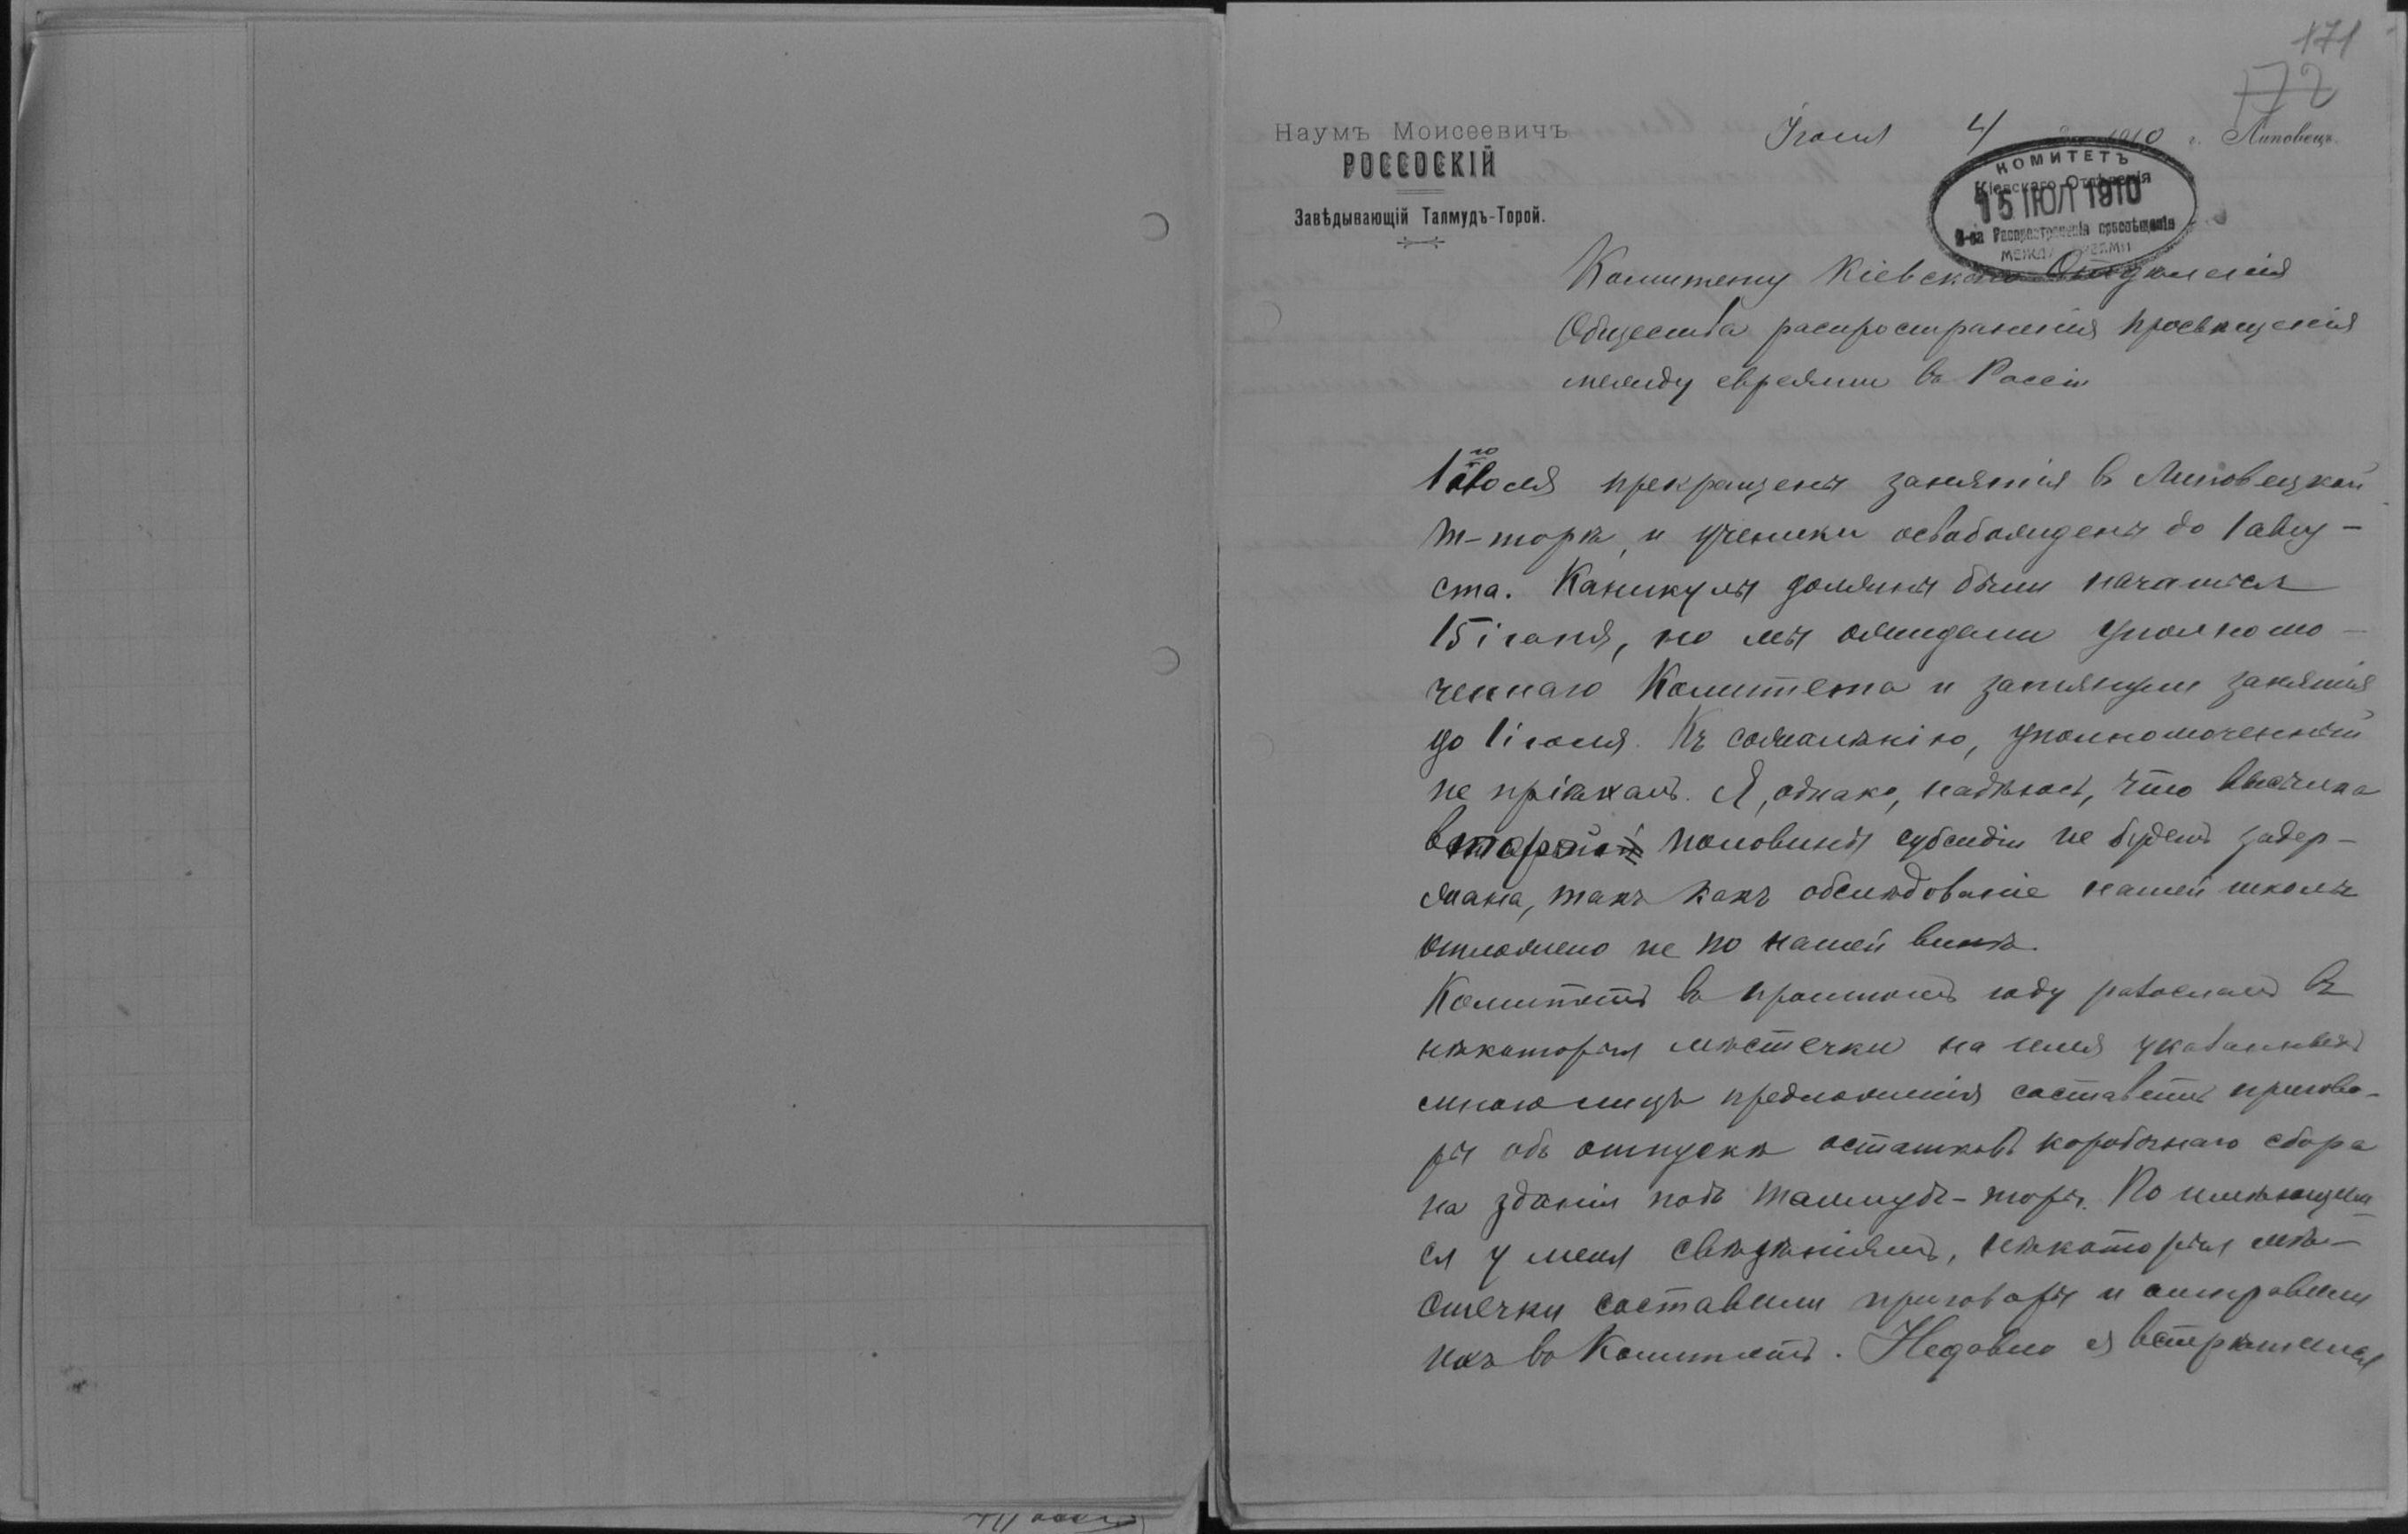 171
172
Наумъ Моисеевичъ
РОССОСКІЙ
Завѣдывающій Талмудъ-Торой.
Іюля 4 1910 г. Липовецъ.
КОМИТЕТЪ
Кіевскаго Отдѣленія
15 ІЮЛ 1910
О-ва Распространенія просвѣщенія
МЕЖДУ ЕВРЕЯМИ
Комитету Кіевскаго Отдѣленія
Общества распространенія просвѣщенія
между евреями въ Россіи
1го іюля прекращены занятія въ Липовецкой
т-торѣ, и ученики освобождены до 1 авгу-
ста. Каникулы должны были начаться
15 іюня, но мы ожидали уполномо-
ченнаго Комитета и затянули занятія
до 1 іюля. Къ сожалѣнію, уполномоченный
не пріѣхалъ. Я, однако, надѣюсь, что высылка
второй половины субсидіи не будетъ задер-
жана, такъ какъ обслѣдованіе нашей школы
отложено не по нашей винѣ.
Комитетъ въ прошломъ году разослалъ въ
нѣкоторыя мѣстечки на имя указанныхъ
мною лицъ предложенія составить пригово-
ры объ отпускѣ остатковъ коробочнаго сбора
на зданія подъ талмудъ-торы. По имѣющим-
ся у меня свѣдѣніямъ, нѣкоторыя мѣ-
стечки составили приговоры и отправили
ихъ въ Комитетъ. Недавно я встрѣтился